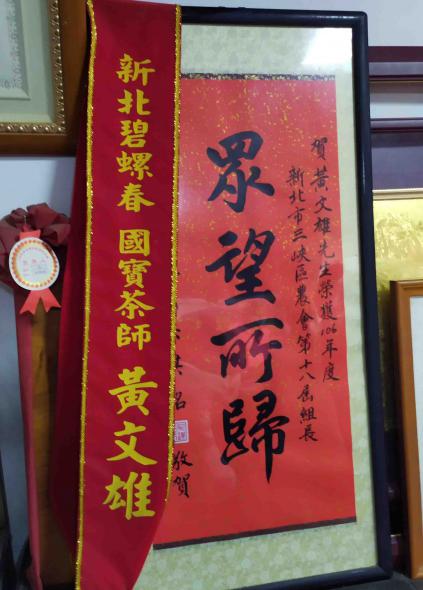 賀黃文雄先生榮獲106年度
新北市三峽區農會第十八屆組長
眾望所歸
敬賀
新北碧螺春 國寶茶師 黃文雄